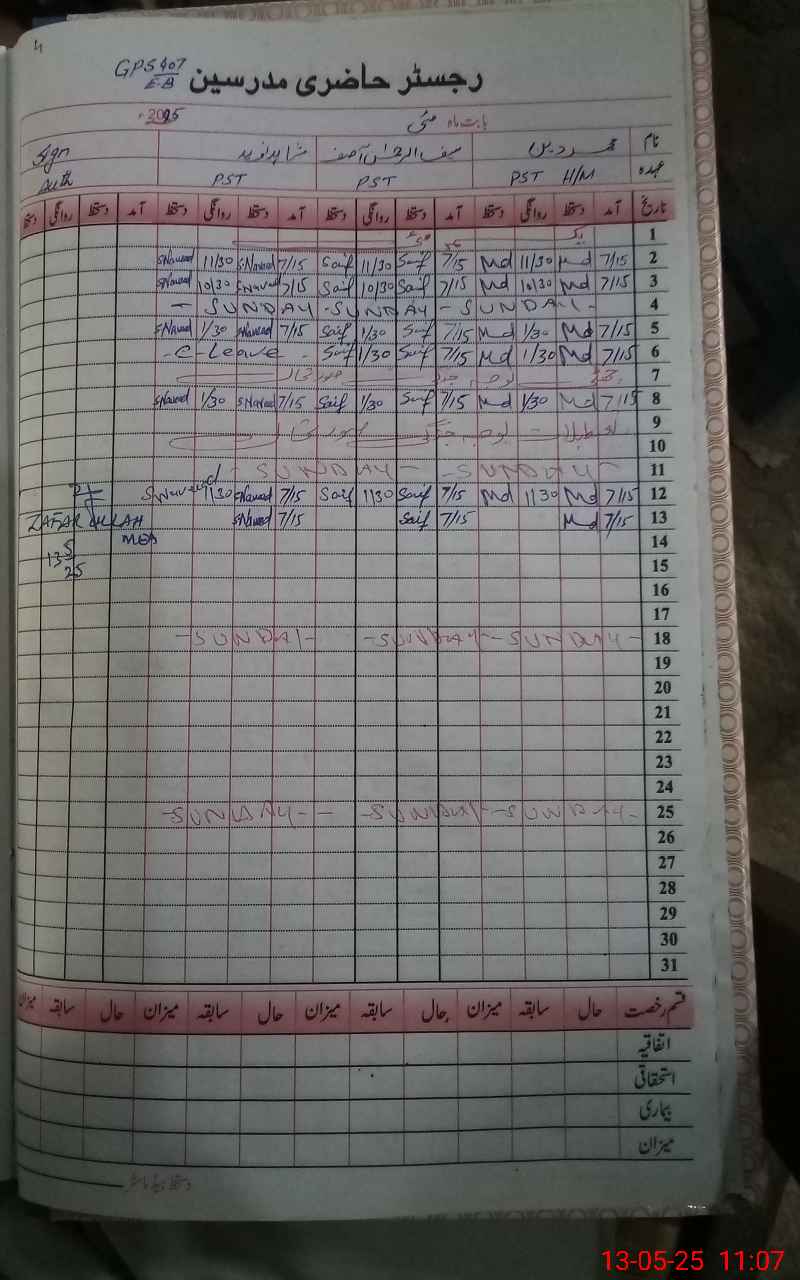 4
GPS 407
E-B
رجسٹر حاضری مدرسین
بابت ماہ مئی 2025ء
نام محمد دین سیف الرحمٰن آصف شاہد نوید Sign
عہدہ PST H/M PST PST Auth
تاریخ آمد دستخط روانگی دستخط آمد دستخط روانگی دستخط آمد دستخط روانگی دستخط آمد دستخط روانگی دستخط
1
2 7/15 Md 11/30 Md 7/15 Saif 11/30 Saif 7/15 SNaveed 11/30 SNaveed
3 7/15 Md 10/30 Md 7/15 Saif 10/30 Saif 7/15 SNaveed 10/30 SNaveed
4 - SUNDAY - SUNDAY - SUNDAY -
5 7/15 Md 1/30 Md 7/15 Saif 1/30 Saif 7/15 SNaveed 1/30 SNaveed
6 7/15 Md 1/30 Md 7/15 Saif 1/30 Saif - C-Leave -
7
8 7/15 Md 1/30 Md 7/15 Saif 1/30 Saif 7/15 SNaveed 1/30 SNaveed
9
10
11 - SUNDAY - - SUNDAY -
12 7/15 Md 1/30 Md 7/15 Saif 1/30 Saif 7/15 SNaveed 1/30 SNaveed
13 7/15 Md 7/15 Saif 7/15 SNaveed ZAFAR ULLAH
14
13 5
25
15
16
17
18 - SUNDAY - - SUNDAY - - SUNDAY -
19
20
21
22
23
24
25 - SUNDAY - - SUNDAY - - SUNDAY -
26
27
28
29
30
31
قسم رخصت حال سابقہ میزان حال سابقہ میزان حال سابقہ میزان حال سابقہ میزان
اتفاقیہ
استحقاقی
بیماری
میزان
دستخط ہیڈ ماسٹر
13-05-25 11:07